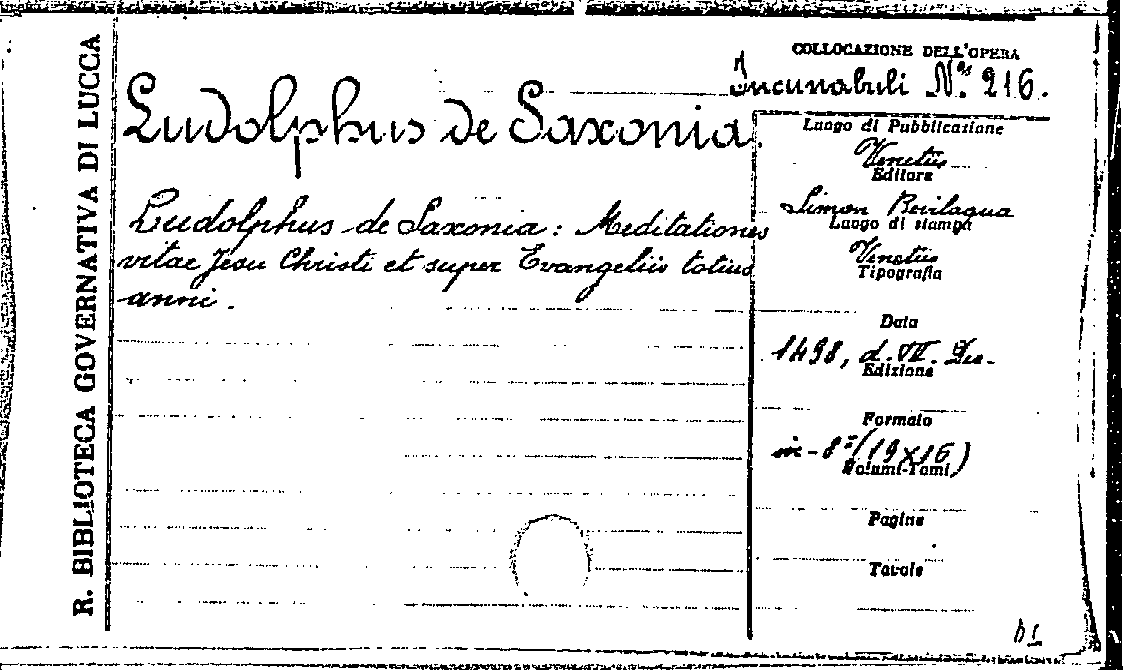 R. BIBLIOTECA GOVERNATIVA DI LUCCA
COLLOCAZIONE DELL'OPERA
Incunabuli N.os 216.
Ludolphus de Saxonia.
Ludolphus de Saxonia: Meditationes
vitae Jesu Christi et super Evangeliis totius
anni.
Luogo di Pubblicazione
Venetiis
Editore
Simon Bevilaqua
Luogo di stampa
Venetiis
Tipografia
Data
1498, d. VII. Dec.
Edizione
Formato
in-8° (19x16)
Volumi-Tomi
Pagine
Tavole